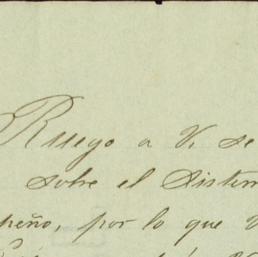 Ruego a V. se
sobre el Sistem
peño, por lo que V